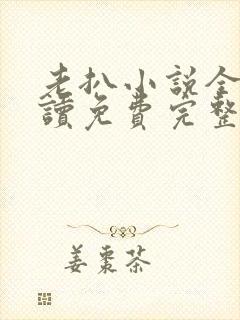 老扒小说全
讀免費完整
姜棗茶